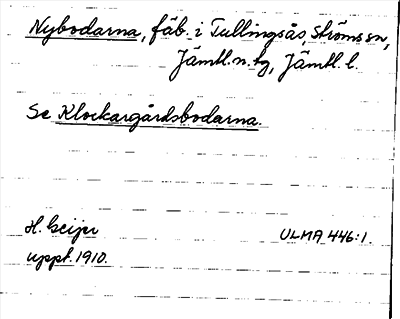 Nybodarna, fäb. i Tullingsås, Ströms sn,
Jämtl. n. tg, Jämtl. l.
Se Klockargårdsbodarna.
H. Geijer ULMA 446:1.
uppt. 1910.